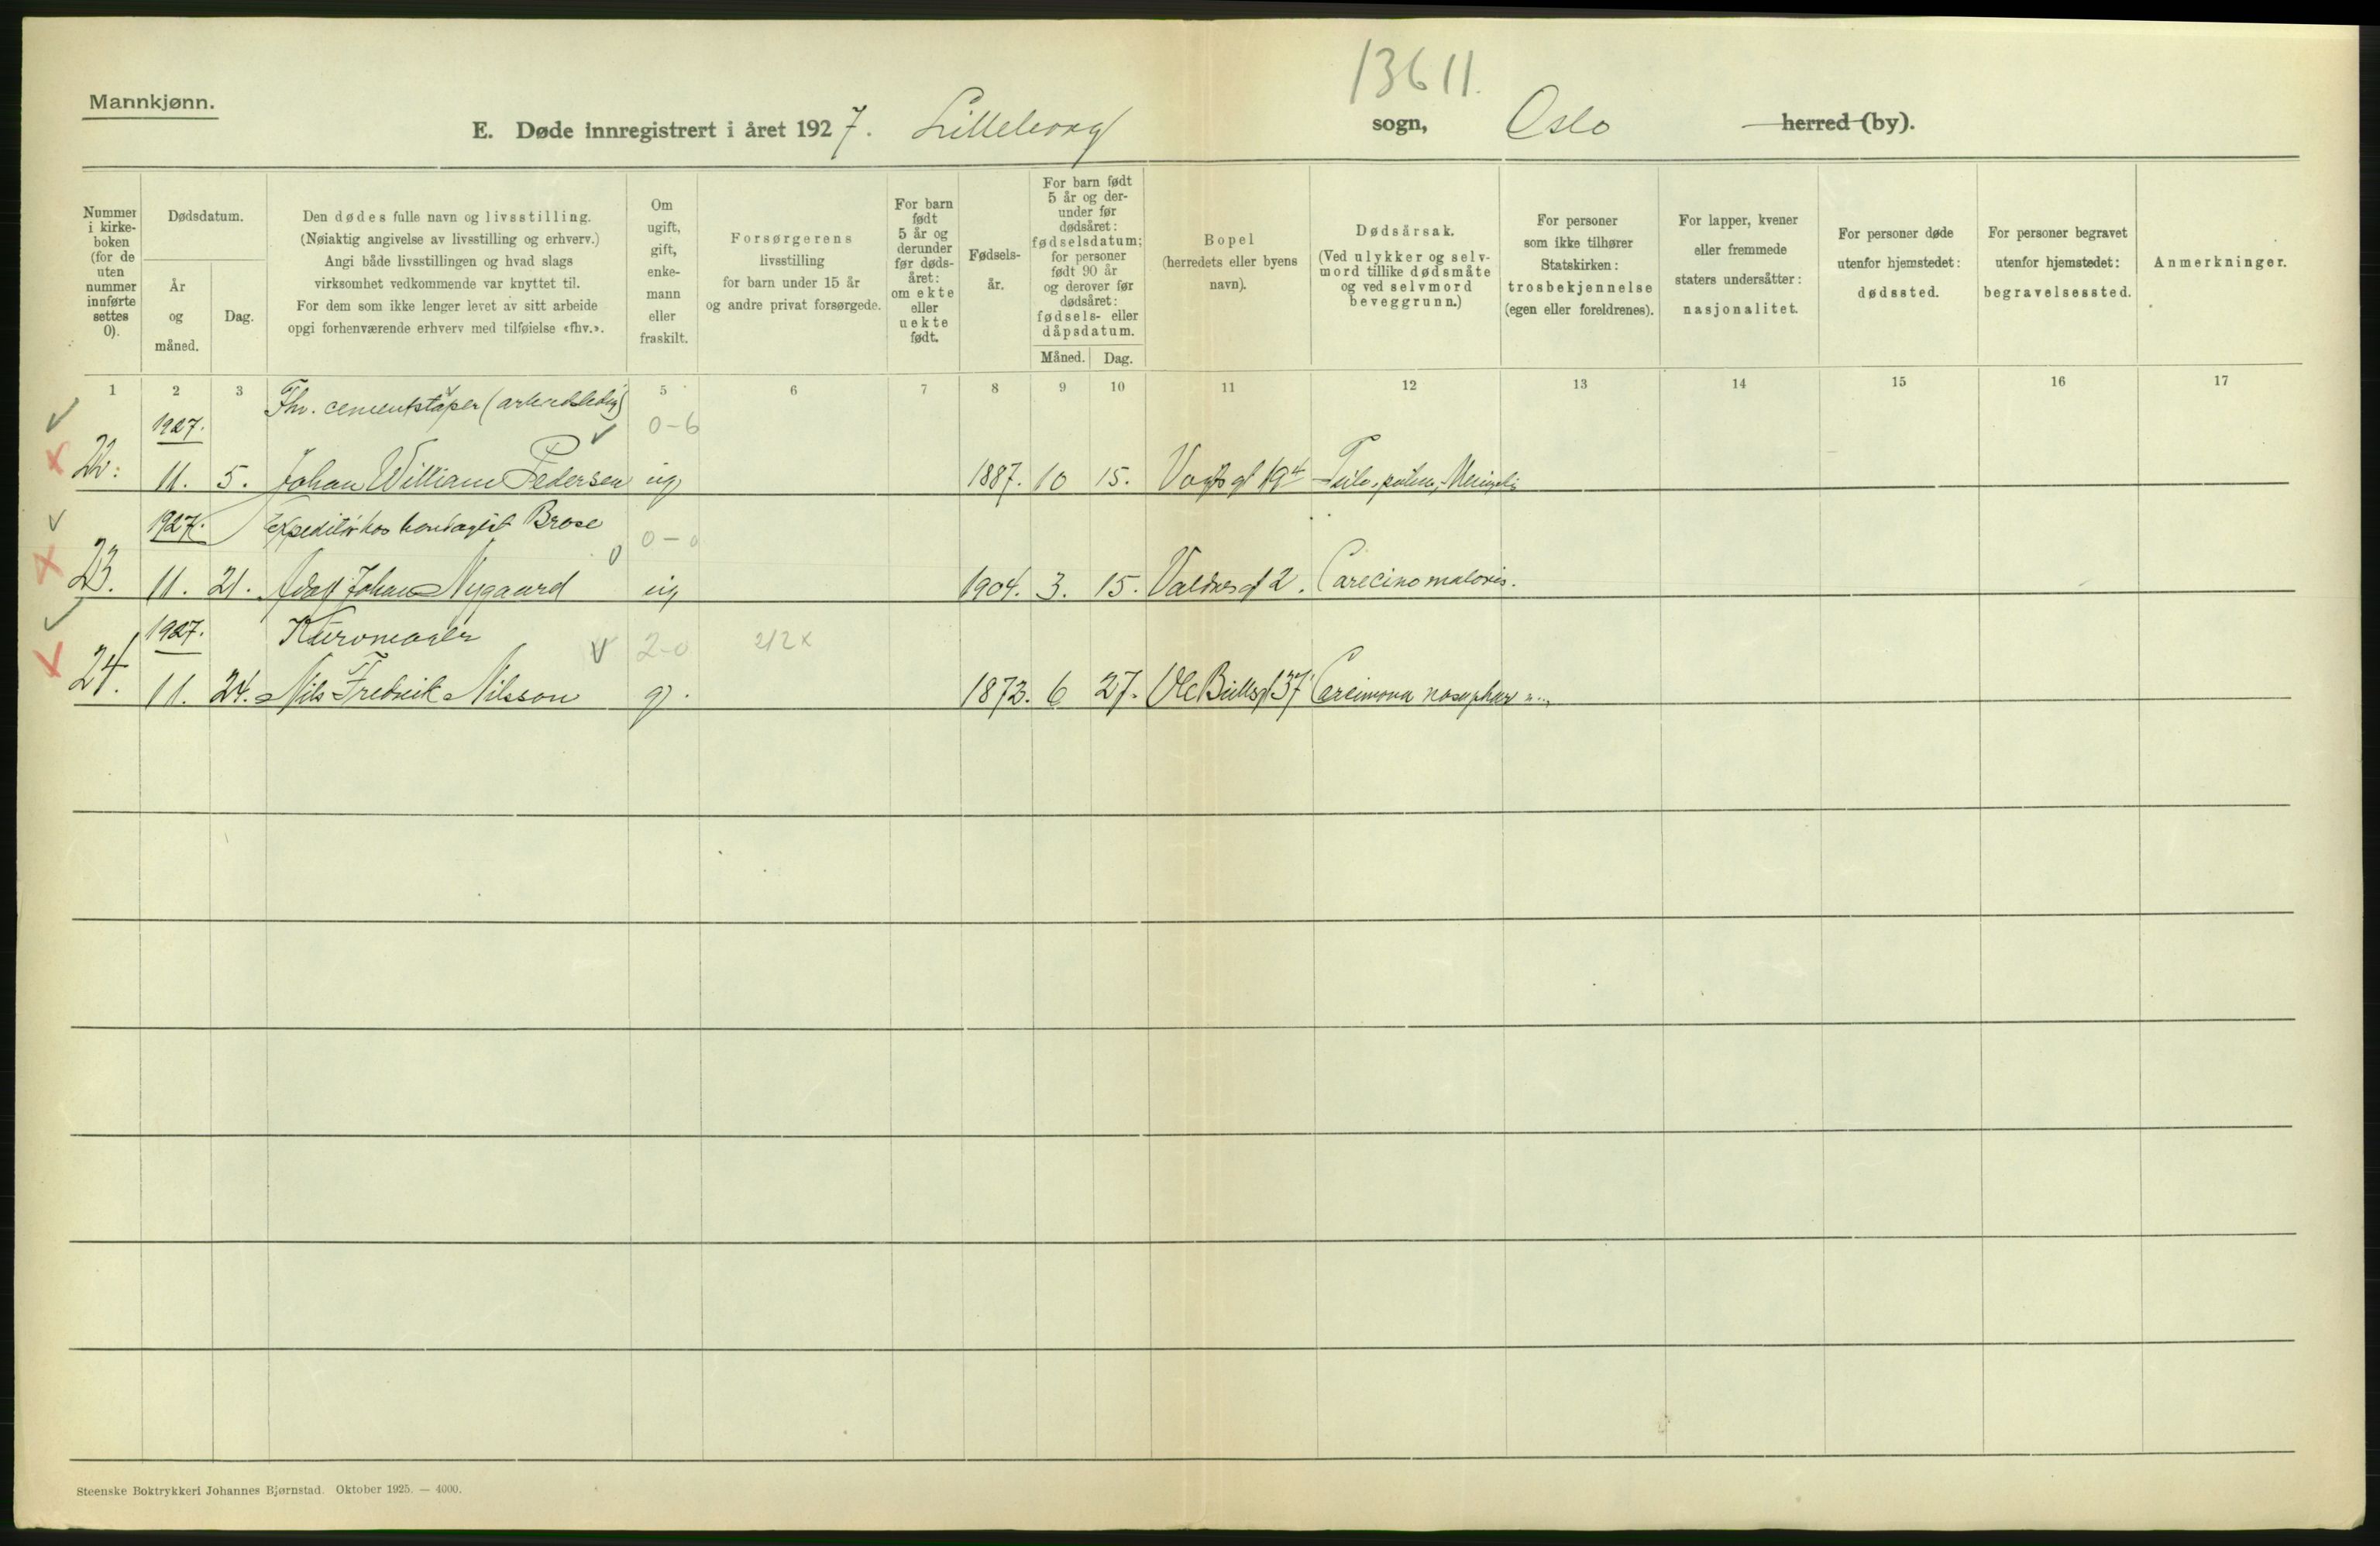 13611.
Mannkjønn.
E. Døde innregistrert i året 1927. Lilleborg sogn, Oslo herred (by).
Nummer i kirke-boken (for de uten nummer innførte settes 0).
Dødsdatum.
År og måned.
Dag.
Den dødes fulle navn og livsstilling.
(Nøiaktig angivelse av livsstilling og erhverv.)
Angi både livsstillingen og hvad slags
virksomhet vedkommende var knyttet til.
For dem som ikke lenger levet av sitt arbeide
opgi forhenværende erhverv med tilføielse «fhv.».
Om ugift, gift, enke-mann eller fraskilt.
Forsørgerens
livsstilling
for barn under 15 år
og andre privat forsørgede.
For barn født 5 år og derunder før døds-året: om ekte eller uekte født.
Fødsels-år.
For barn født 5 år og der-under før dødsåret: fødselsdatum; for personer født 90 år og derover før dødsåret: fødsels- eller dåpsdatum.
Måned.
Dag.
Bopel
(herredets eller byens
navn).
Dødsårsak.
(Ved ulykker og selv-
mord tillike dødsmåte
og ved selvmord
beveggrunn.)
For personer
som ikke tilhører
Statskirken:
trosbekjennelse
(egen eller foreldrenes).
For lapper, kvener
eller fremmede
staters undersåtter:
nasjonalitet.
For personer døde
utenfor hjemstedet:
dødssted.
For personer begravet
utenfor hjemstedet:
begravelsessted.
Anmerkninger.
1 2 3 5 6 7 8 9 10 11 12 13 14 15 16 17
1927. Fhv. cementstøper (arbeidsledig) 0-6
22. 11. 5. Johan William Pedersen ug 1887. 10 15. Vogts gt 19
1927. Expeditør hos Brose 0-0
23. 11. 21. Adolf Johan Nygaard ug 1904. 3. 15. Valdresgt 2.
1927. Kurvmager 2-0 212x
24. 11. 24. Nils Fredrik Nilsson g. 1873. 6 27. Ole Bullsgt 37
Steenske Boktrykkeri Johannes Bjørnstad. Oktober 1925. — 4000.